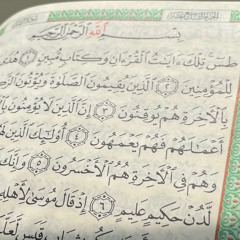 بِسْمِ ٱللَّهِ ٱلرَّحْمَٰنِ ٱلرَّحِيمِ
طسٓ تِلْكَ ءَايَٰتُ ٱلْقُرْءَانِ وَكِتَابٍ مُّبِينٍ ١
لِلْمُؤْمِنِينَ ٢ ٱلَّذِينَ يُقِيمُونَ ٱلصَّلَوٰةَ وَيُؤْتُونَ
بِٱلْءَاخِرَةِ هُمْ يُوقِنُونَ ٣ إِنَّ ٱلَّذِينَ لَا يُؤْمِنُونَ
أَعْمَٰلَهُمْ فَهُمْ يَعْمَهُونَ ٤ أُو۟لَٰٓئِكَ
وَهُمْ فِى ٱلْءَاخِرَةِ هُمُ ٱلْأَخْسَرُونَ ٥ وَإِنَّكَ
لَّدُنْ حَكِيمٍ عَلِيمٍ ٦ إِذْ قَالَ مُوسَىٰ لِأَهْلِهِ